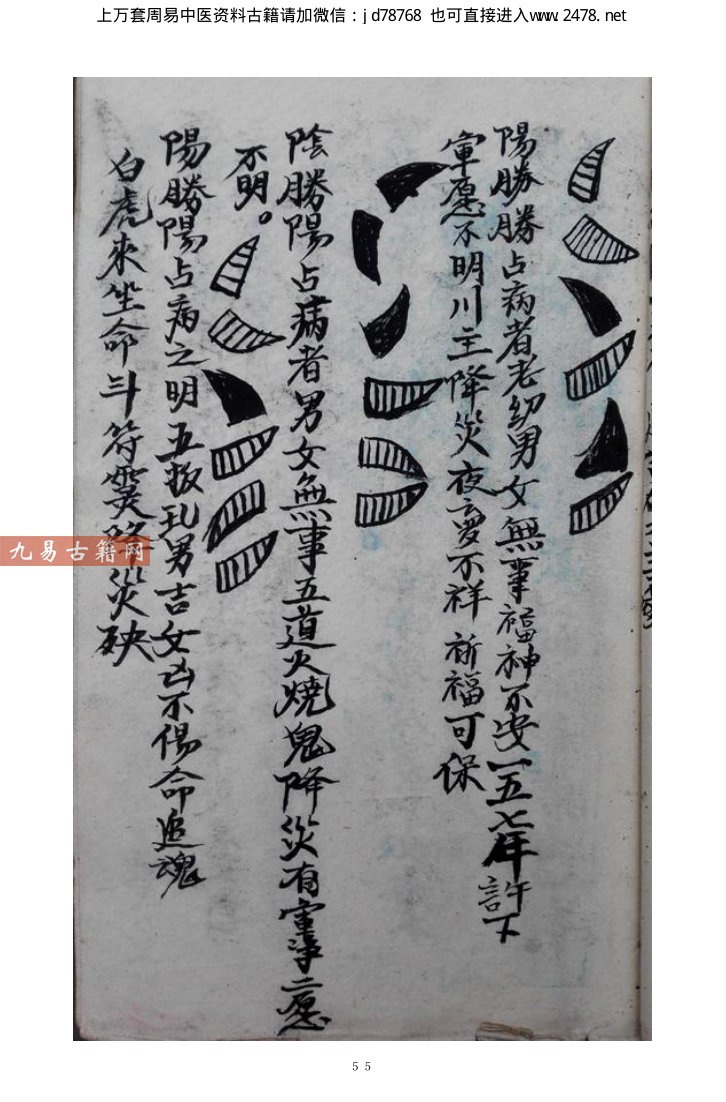 上万套周易中医资料古籍请加微信：jd78768 也可直接进入www.2478.net
陽勝勝占病者老幼男女無事福神不安一五七年許下
愿不明川主降災夜夢不祥祈福可保
陰勝陽占病者男女無事五道火燒鬼降災有 二愿
不明。
陽勝陽占病之明五叛乱男吉女凶不傷命追魂
白虎來坐命斗符 降災殃
九易古籍网
55